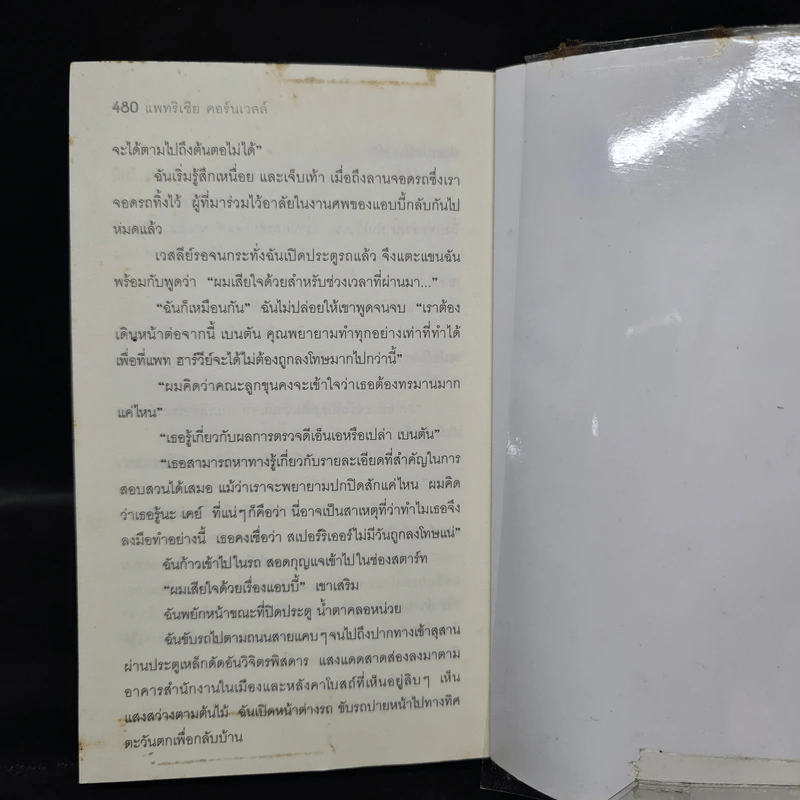 480 แพทริเซีย คอร์นเวลล์
จะได้ตามไปถึงต้นตอไม่ได้”
ฉันเริ่มรู้สึกเหนื่อย และเจ็บเท้า เมื่อถึงลานจอดรถซึ่งเรา
จอดรถทิ้งไว้ ผู้ที่มาร่วมไว้อาลัยในงานศพของแอบบี้กลับกันไป
หมดแล้ว
เวสลีย์รอจนกระทั่งฉันเปิดประตูรถแล้ว จึงแตะแขนฉัน
พร้อมกับพูดว่า “ผมเสียใจด้วยสำหรับช่วงเวลาที่ผ่านมา...”
“ฉันก็เหมือนกัน” ฉันไม่ปล่อยให้เขาพูดจนจบ “เราต้อง
เดินหน้าต่อจากนี้ เบนตัน คุณพยายามทำทุกอย่างเท่าที่ทำได้
เพื่อที่แพท ฮาร์วีย์จะได้ไม่ต้องถูกลงโทษมากไปกว่านี้”
“ผมคิดว่าคณะลูกขุนคงจะเข้าใจว่าเธอต้องทรมานมาก
แค่ไหน”
“เธอรู้เกี่ยวกับผลการตรวจดีเอ็นเอหรือเปล่า เบนตัน”
“เธอสามารถหาทางรู้เกี่ยวกับรายละเอียดที่สำคัญในการ
สอบสวนได้เสมอ แม้ว่าเราจะพยายามปกปิดสักแค่ไหน ผมคิด
ว่าเธอรู้นะ เคย์ ที่แน่ๆก็คือว่า นี่อาจเป็นสาเหตุที่ว่าทำไมเธอจึง
ลงมือทำอย่างนี้ เธอคงเชื่อว่า สเปอร์ริเออร์ไม่มีวันถูกลงโทษแน่”
ฉันก้าวเข้าไปในรถ สอดกุญแจเข้าไปในช่องสตาร์ท
“ผมเสียใจด้วยเรื่องแอบบี้” เขาเสริม
ฉันพยักหน้าขณะที่ปิดประตู น้ำตาคลอหน่วย
ฉันขับรถไปตามถนนสายแคบๆจนไปถึงปากทางเข้าสุสาน
ผ่านประตูเหล็กดัดอันวิจิตรพิสดาร แสงแดดสาดส่องลงมาตาม
อาคารสำนักงานในเมืองและหลังคาโบสถ์ที่เห็นอยู่ลิบๆ เห็น
แสงสว่างตามต้นไม้ ฉันเปิดหน้าต่างรถ ขับรถบ่ายหน้าไปทางทิศ
ตะวันตกเพื่อกลับบ้าน